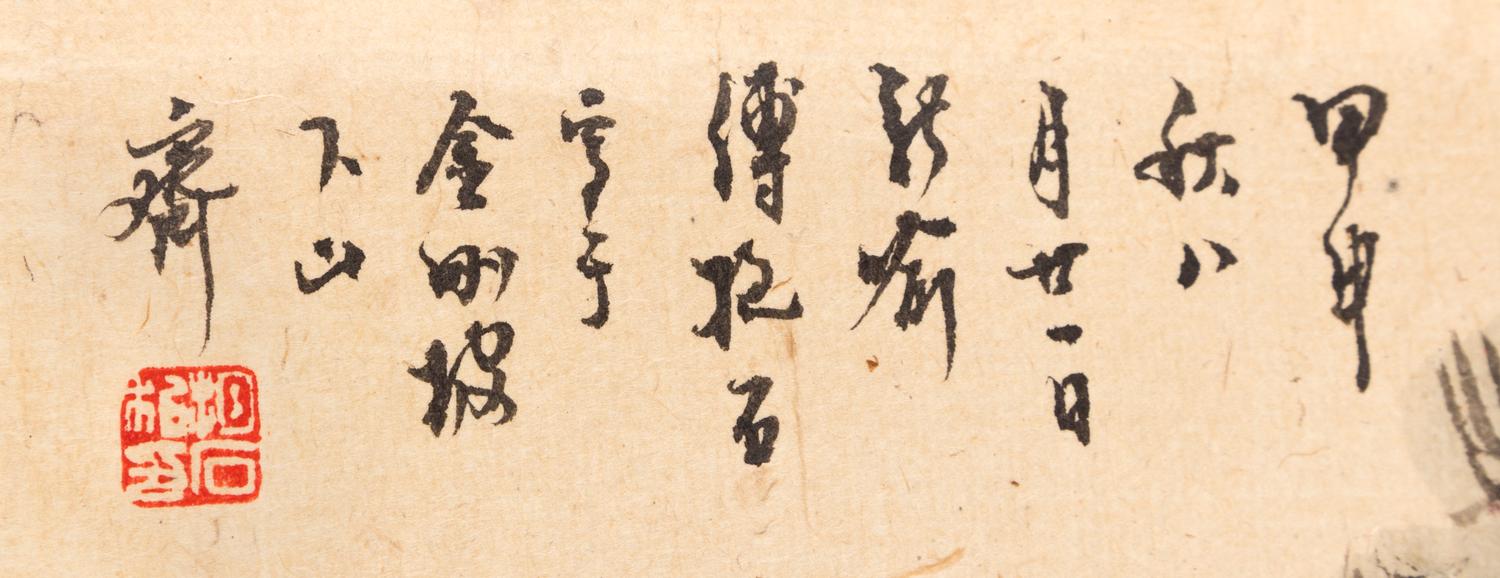 甲申
秋八
月廿一日
新喻
傅抱石
寫于
金剛坡
下山
齋
抱石